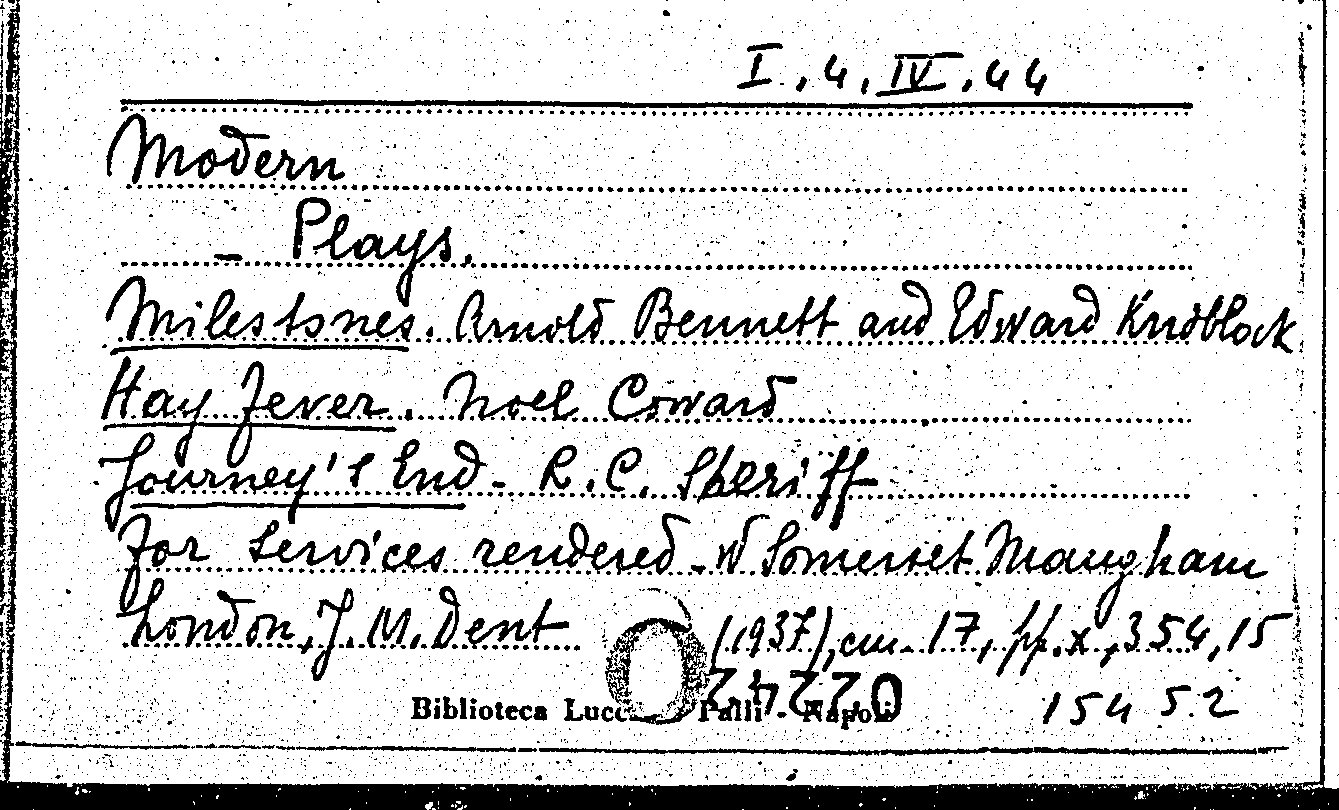 I.4.IV.44
Modern
- Plays.
Milestones. Arnold Bennett and Edward Knoblock
Hay Fever. Noel Coward
Journey's End - R.C. Sheriff
For Services rendered - W Somerset Maugham
London, J.M. Dent (1937), cm. 17, pp. x, 354, 15
Biblioteca Lucc Palli - Napoli 154 52